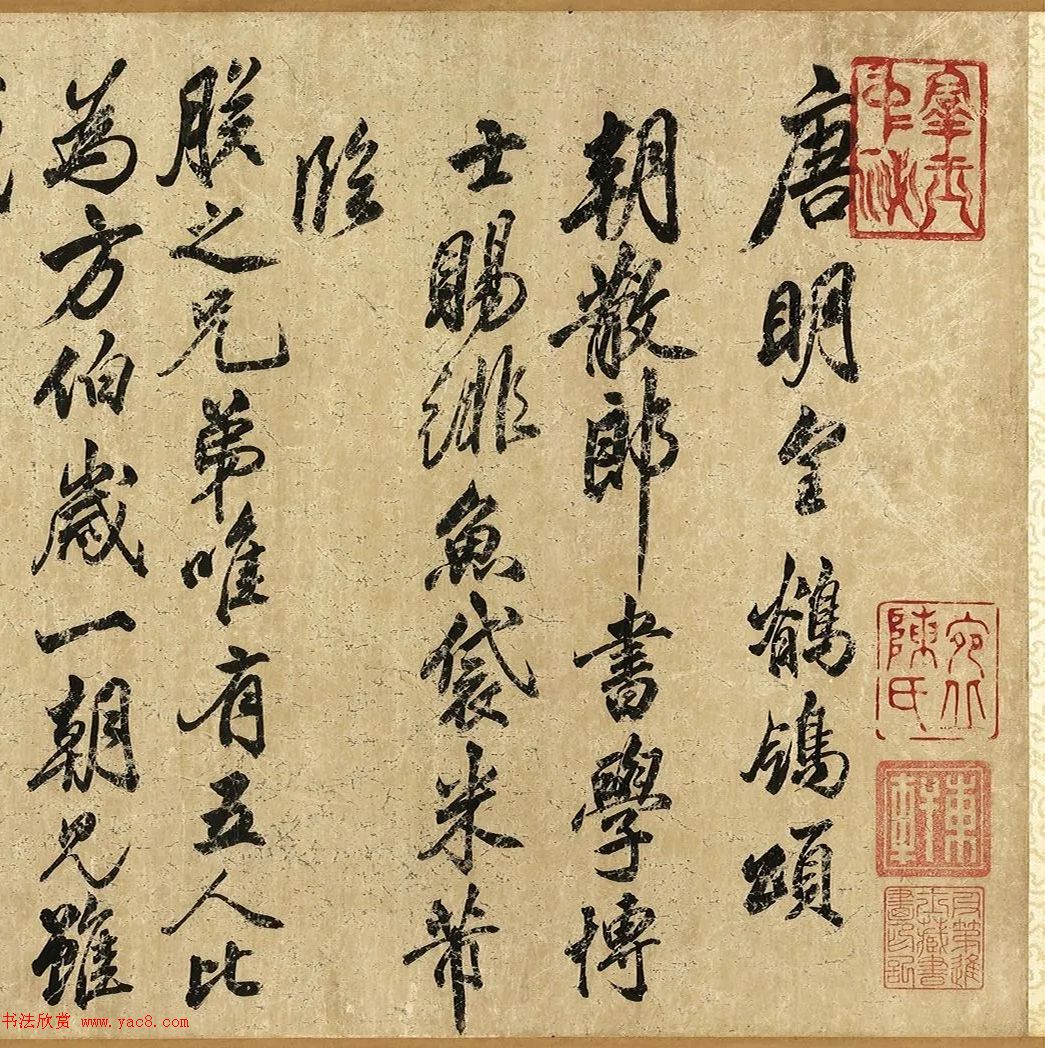 羣玉中秘
唐明皇鶺鴒頌
朝散郎書學博
士賜緋魚袋米芾
臨
朕之兄弟唯有五人比
為方伯歲一朝見雖
陳氏
书法欣赏 www.yac8.com